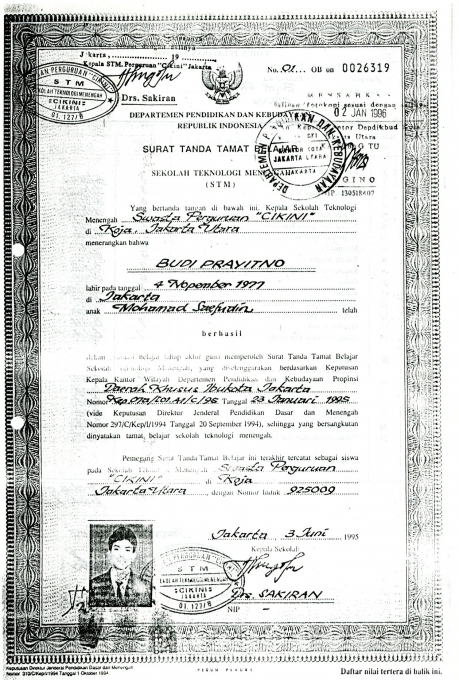 Jakarta, 19
Kepala STM. Perguruan "Cikini" Jakarta
Drs. Sakiran
PERGURUAN "CIKINI"
S T M
SEKOLAH TEKNOLOGI MENENGAH
"CIKINI"
JAKARTA
01. 127/B
No. 01 OB on 0026319
02 JAN 1996
DEPARTEMEN PENDIDIKAN DAN KEBUDAYAAN
REPUBLIK INDONESIA
SURAT TANDA TAMAT BELAJAR
SEKOLAH TEKNOLOGI MENENGAH
(STM)
KANTOR KOTA
JAKARTA UTARA
NIP 130518407
Yang bertanda tangan di bawah ini, Kepala Sekolah Teknologi
Menengah Swasta Perguruan "CIKINI"
di Koja, Jakarta Utara
menerangkan bahwa
BUDI PRAYITNO
lahir pada tanggal 4 Nopember 1977
di Jakarta
anak Mohamad Saefudin telah
berhasil
dalam Belajar tahap akhir guna memperoleh Surat Tanda Tamat Belajar
Sekolah Teknologi Menengah, yang diselenggarakan berdasarkan Keputusan
Kepala Kantor Wilayah Departemen Pendidikan dan Kebudayaan Propinsi
Daerah Khusus Ibukota Jakarta
Nomor Tanggal 23 Januari 1995
(vide Keputusan Direktur Jenderal Pendidikan Dasar dan Menengah
Nomor 297/C/Kep/I/1994 Tanggal 20 September 1994), sehingga yang bersangkutan
dinyatakan tamat belajar sekolah teknologi menengah.
Pemegang Surat Tanda Tamat Belajar ini terakhir tercatat sebagai siswa
pada Sekolah Teknologi Menengah Swasta Perguruan
"CIKINI" di Koja
Jakarta Utara, dengan Nomor Induk 925009
Jakarta, 3 Juni 1995
Kepala Sekolah
PERGURUAN "CIKINI"
S T M
SEKOLAH TEKNOLOGI MENENGAH
"CIKINI"
JAKARTA
01. 127/B
Drs. SAKIRAN
NIP -
Keputusan Direktur Jenderal Pendidikan Dasar dan Menengah
Nomor 310/C/Kep/I/1994 Tanggal 1 Oktober 1994
PERUM PERURI
Daftar nilai tertera di balik ini.